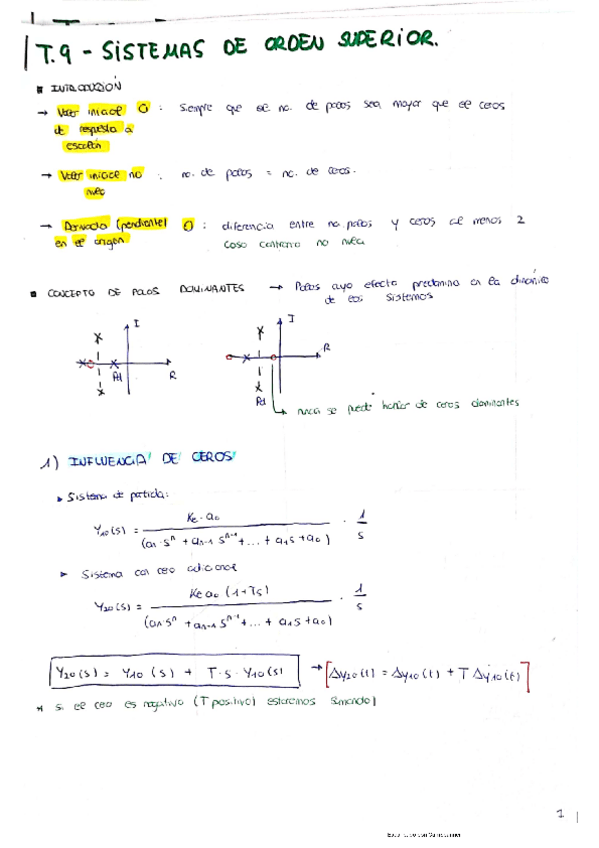 T.9 - SISTEMAS DE ORDEN SUPERIOR.
INTRODUCCIÓN
→ Valor inicial 0 : siempre que el no. de polos sea mayor que el ceros
de respuesta a
escalón
→ Valor inicial no : no. de polos = no. de ceros.
nulo
→ Derivada (pendiente) 0 : diferencia entre no. polos y ceros al menos 2
en el origen caso contrario no nula
CONCEPTO DE POLOS DOMINANTES → Polos cuyo efecto predomina en la dinámica
de los sistemas
I
I
R
Pd
R
Pd
nunca se puede hablar de ceros dominantes
1) INFLUENCIA DE CEROS
Sistema de partida:
Y10(s) = Ke·a0 / (an·s^n + an-1 s^n-1 + ... + a1s + a0) · 1/s
Sistema con cero adicional
Y20(s) = Ke a0 (1+Ts) / (an·s^n + an-1 s^n-1 + ... + a1s + a0) · 1/s
Y20(s) = Y10(s) + T·s·Y10(s) → [Δy20(t) = Δy10(t) + T Δẏ10(t)]
* si el cero es negativo (T positivo) estaremos sumando)
1